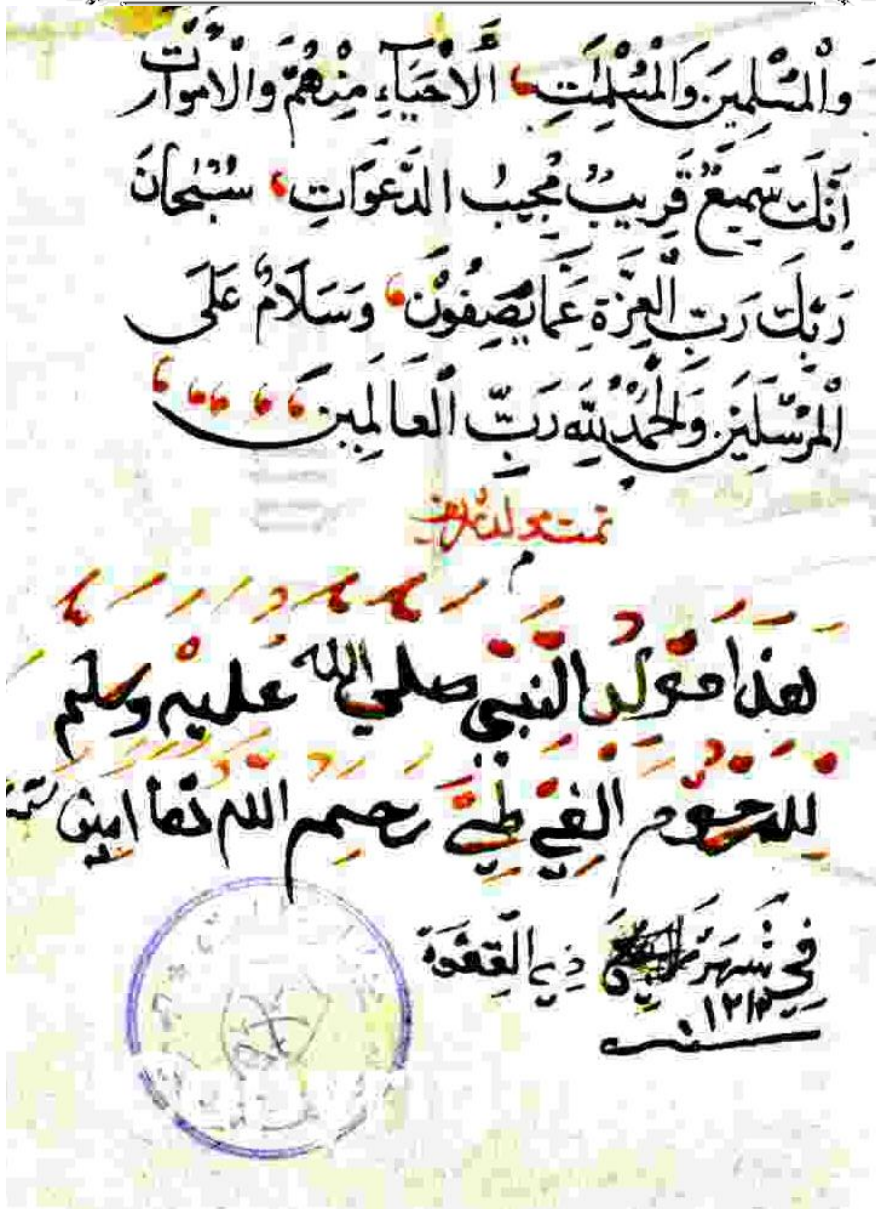 وَالْمُسْلِمِينَ وَالْمُسْلِمَاتِ، اَلْاَحْيَآءِ مِنْهُمْ وَالْاَمْوَاتِ
اِنَّكَ سَمِيعٌ قَرِيبٌ مُجِيبُ الدَّعَوَاتِ، سُبْحَانَ
رَبِّكَ رَبِّ الْعِزَّةِ عَمَّا يَصِفُونَ، وَسَلَامٌ عَلَى
الْمُرْسَلِينَ وَالْحَمْدُ لِلّٰهِ رَبِّ الْعَالَمِينَ،،،،،
تمت مولد شريف
م
هَذَا مَوْلِدُ النَّبِي صَلي الله عَليْهِ وَسَلم
لِلْمَرْحُوم الفقي رحمه الله تعا امين
فِي شَهْرِ ذِي القِعْدَة